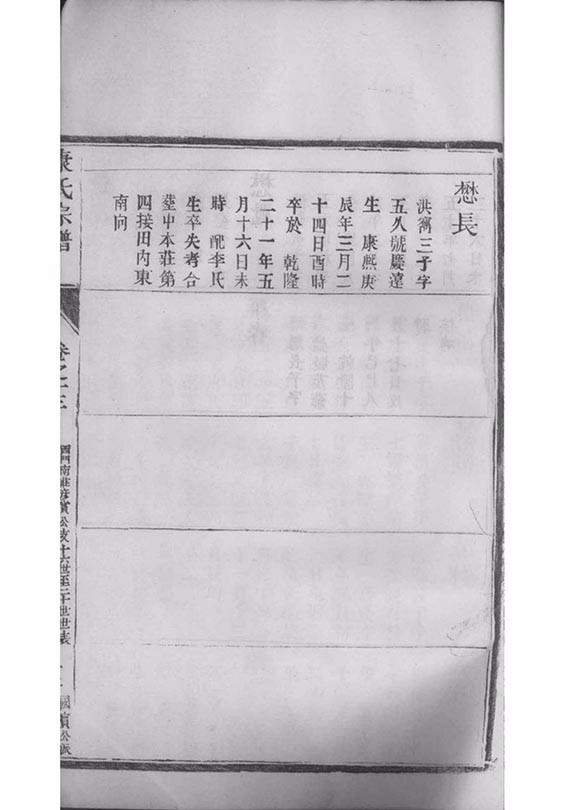 懋長
洪寯三子字
五八號慶達
生 康熙庚
辰年三月二
十四日酉時
卒於 乾隆
二十一年五
月十六日未
時 配李氏
生卒失考合
塟中本莊第
四接田内東
南向
康氏宗譜
卷之十三
世至二十世世表